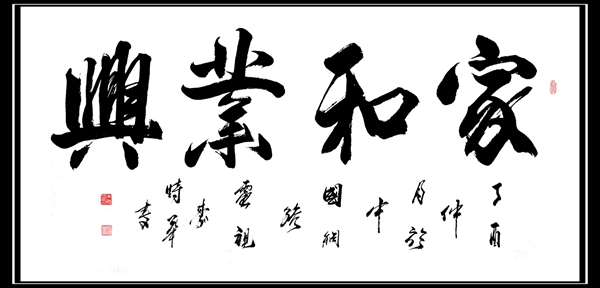 家和業興
丁酉
仲
月於
中
國網
絡
電視
臺
時華
書